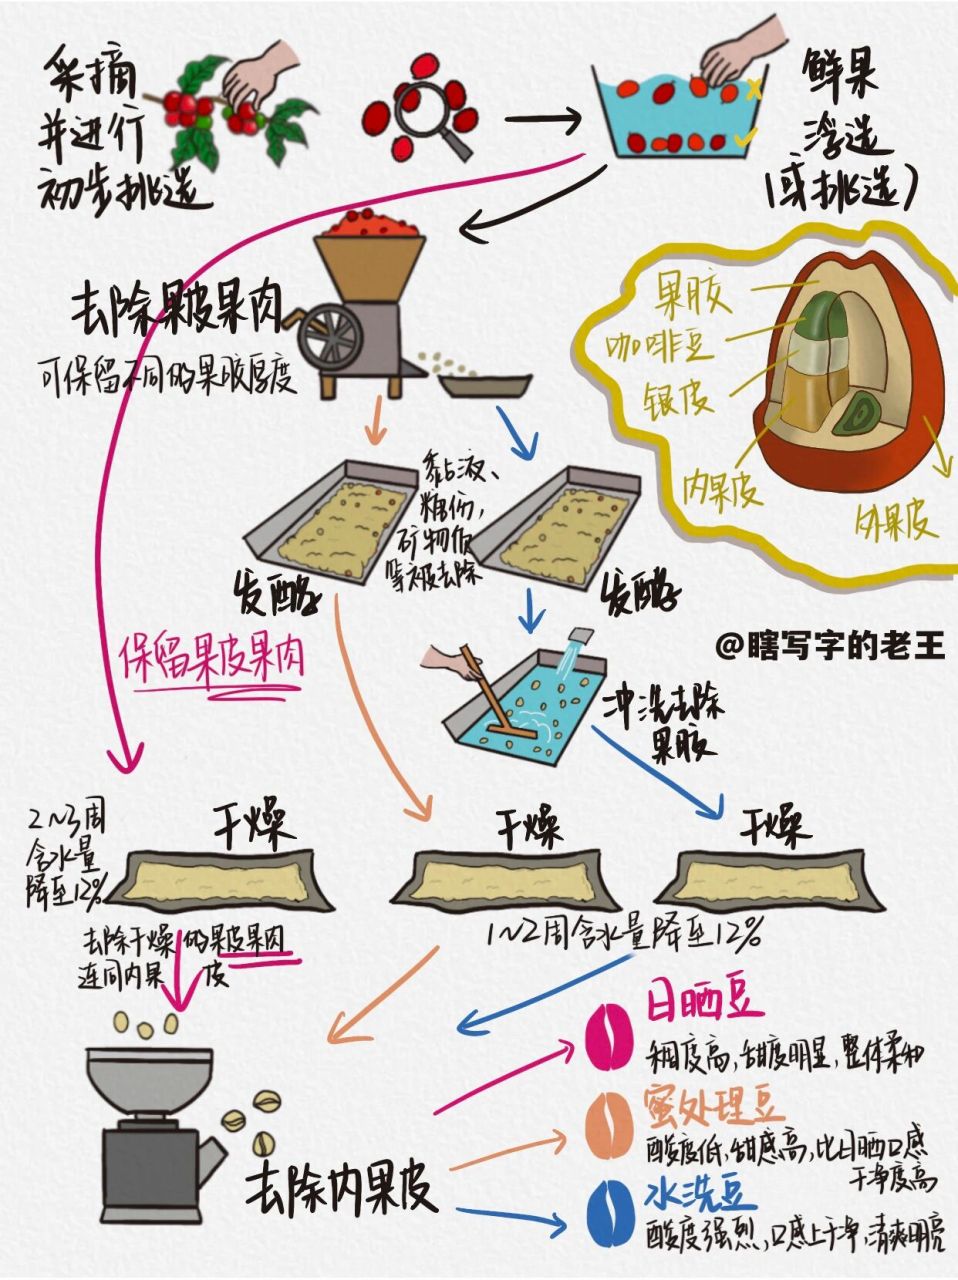 采摘
并进行
初步挑选
鲜果
浮选
(或挑选)
去除果皮果肉
可保留不同的果胶厚度
果胶
咖啡豆
银皮
内果皮
外果皮
黏液、
糖份,
矿物质
等被去除
发酵
发酵
@瞎写字的老王
保留果皮果肉
冲洗去除
果胶
2~3周
含水量
降至12%
干燥
干燥
干燥
1~2周含水量降至12%
去除干燥的果皮果肉
连同内果皮
去除内果皮
日晒豆
稠度高,甜度明显,整体柔和
蜜处理豆
酸度低,甜感高,比日晒口感
干净度高
水洗豆
酸度强烈,口感上干净,清爽明亮